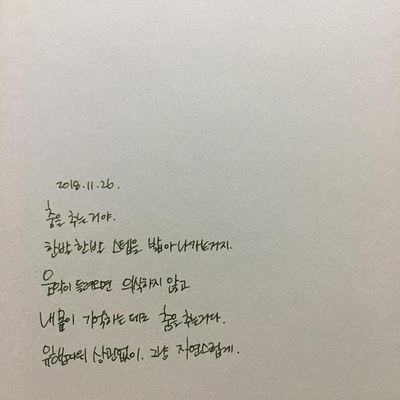 2018.11.26.
춤을 추는거야.
한발 한발 스텝을 밟아 나가는거지.
음악이 들려오면 의식하지 않고
내 몸이 기억하는 대로 춤을 추는거다.
유행따위 상관없이. 그냥 자연스럽게.